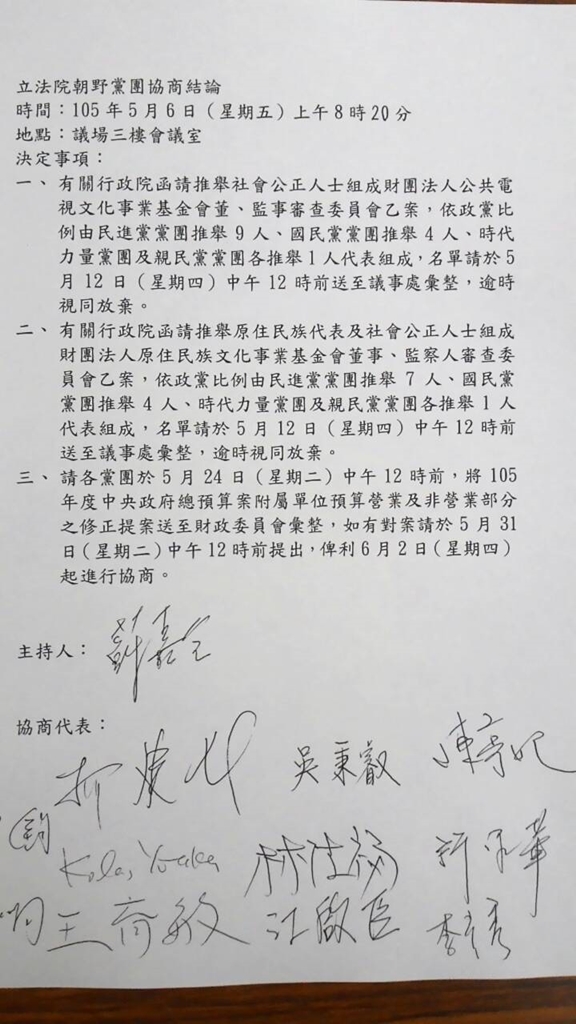 立法院朝野黨團協商結論
時間：105年5月6日（星期五）上午8時20分
地點：議場三樓會議室
決定事項：
一、有關行政院函請推舉社會公正人士組成財團法人公共電
視文化事業基金會董、監事審查委員會乙案，依政黨比
例由民進黨黨團推舉9人、國民黨黨團推舉4人、時代
力量黨團及親民黨黨團各推舉1人代表組成，名單請於5
月12日（星期四）中午12時前送至議事處彙整，逾時
視同放棄。
二、有關行政院函請推舉原住民族代表及社會公正人士組成
財團法人原住民族文化事業基金會董事、監察人審查委
員會乙案，依政黨比例由民進黨黨團推舉7人、國民黨
黨團推舉4人、時代力量黨團及親民黨黨團各推舉1人
代表組成，名單請於5月12日（星期四）中午12時前
送至議事處彙整，逾時視同放棄。
三、請各黨團於5月24日（星期二）中午12時前，將105
年度中央政府總預算案附屬單位預算營業及非營業部分
之修正提案送至財政委員會彙整，如有對案請於5月31
日（星期二）中午12時前提出，俾利6月2日（星期四）
起進行協商。
主持人：蘇嘉全
協商代表：
柯建民 吳秉叡 陳亭妃
Kolas Yotaka
王育敏 江啟臣 李彥秀